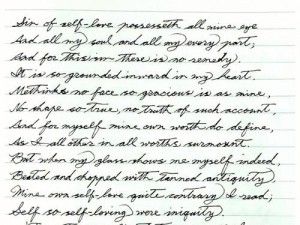 Sin of self-love possesseth all mine eye
And all my soul and all my every part;
And for this sin there is no remedy,
It is so grounded inward in my heart.
Methinks no face so gracious is as mine,
No shape so true, no truth of such account,
And for myself mine own worth do define,
As I all other in all worths surmount.
But when my glass shows me myself indeed,
Beated and chopped with tanned antiquity,
Mine own self-love quite contrary I read;
Self so self-loving were iniquity.